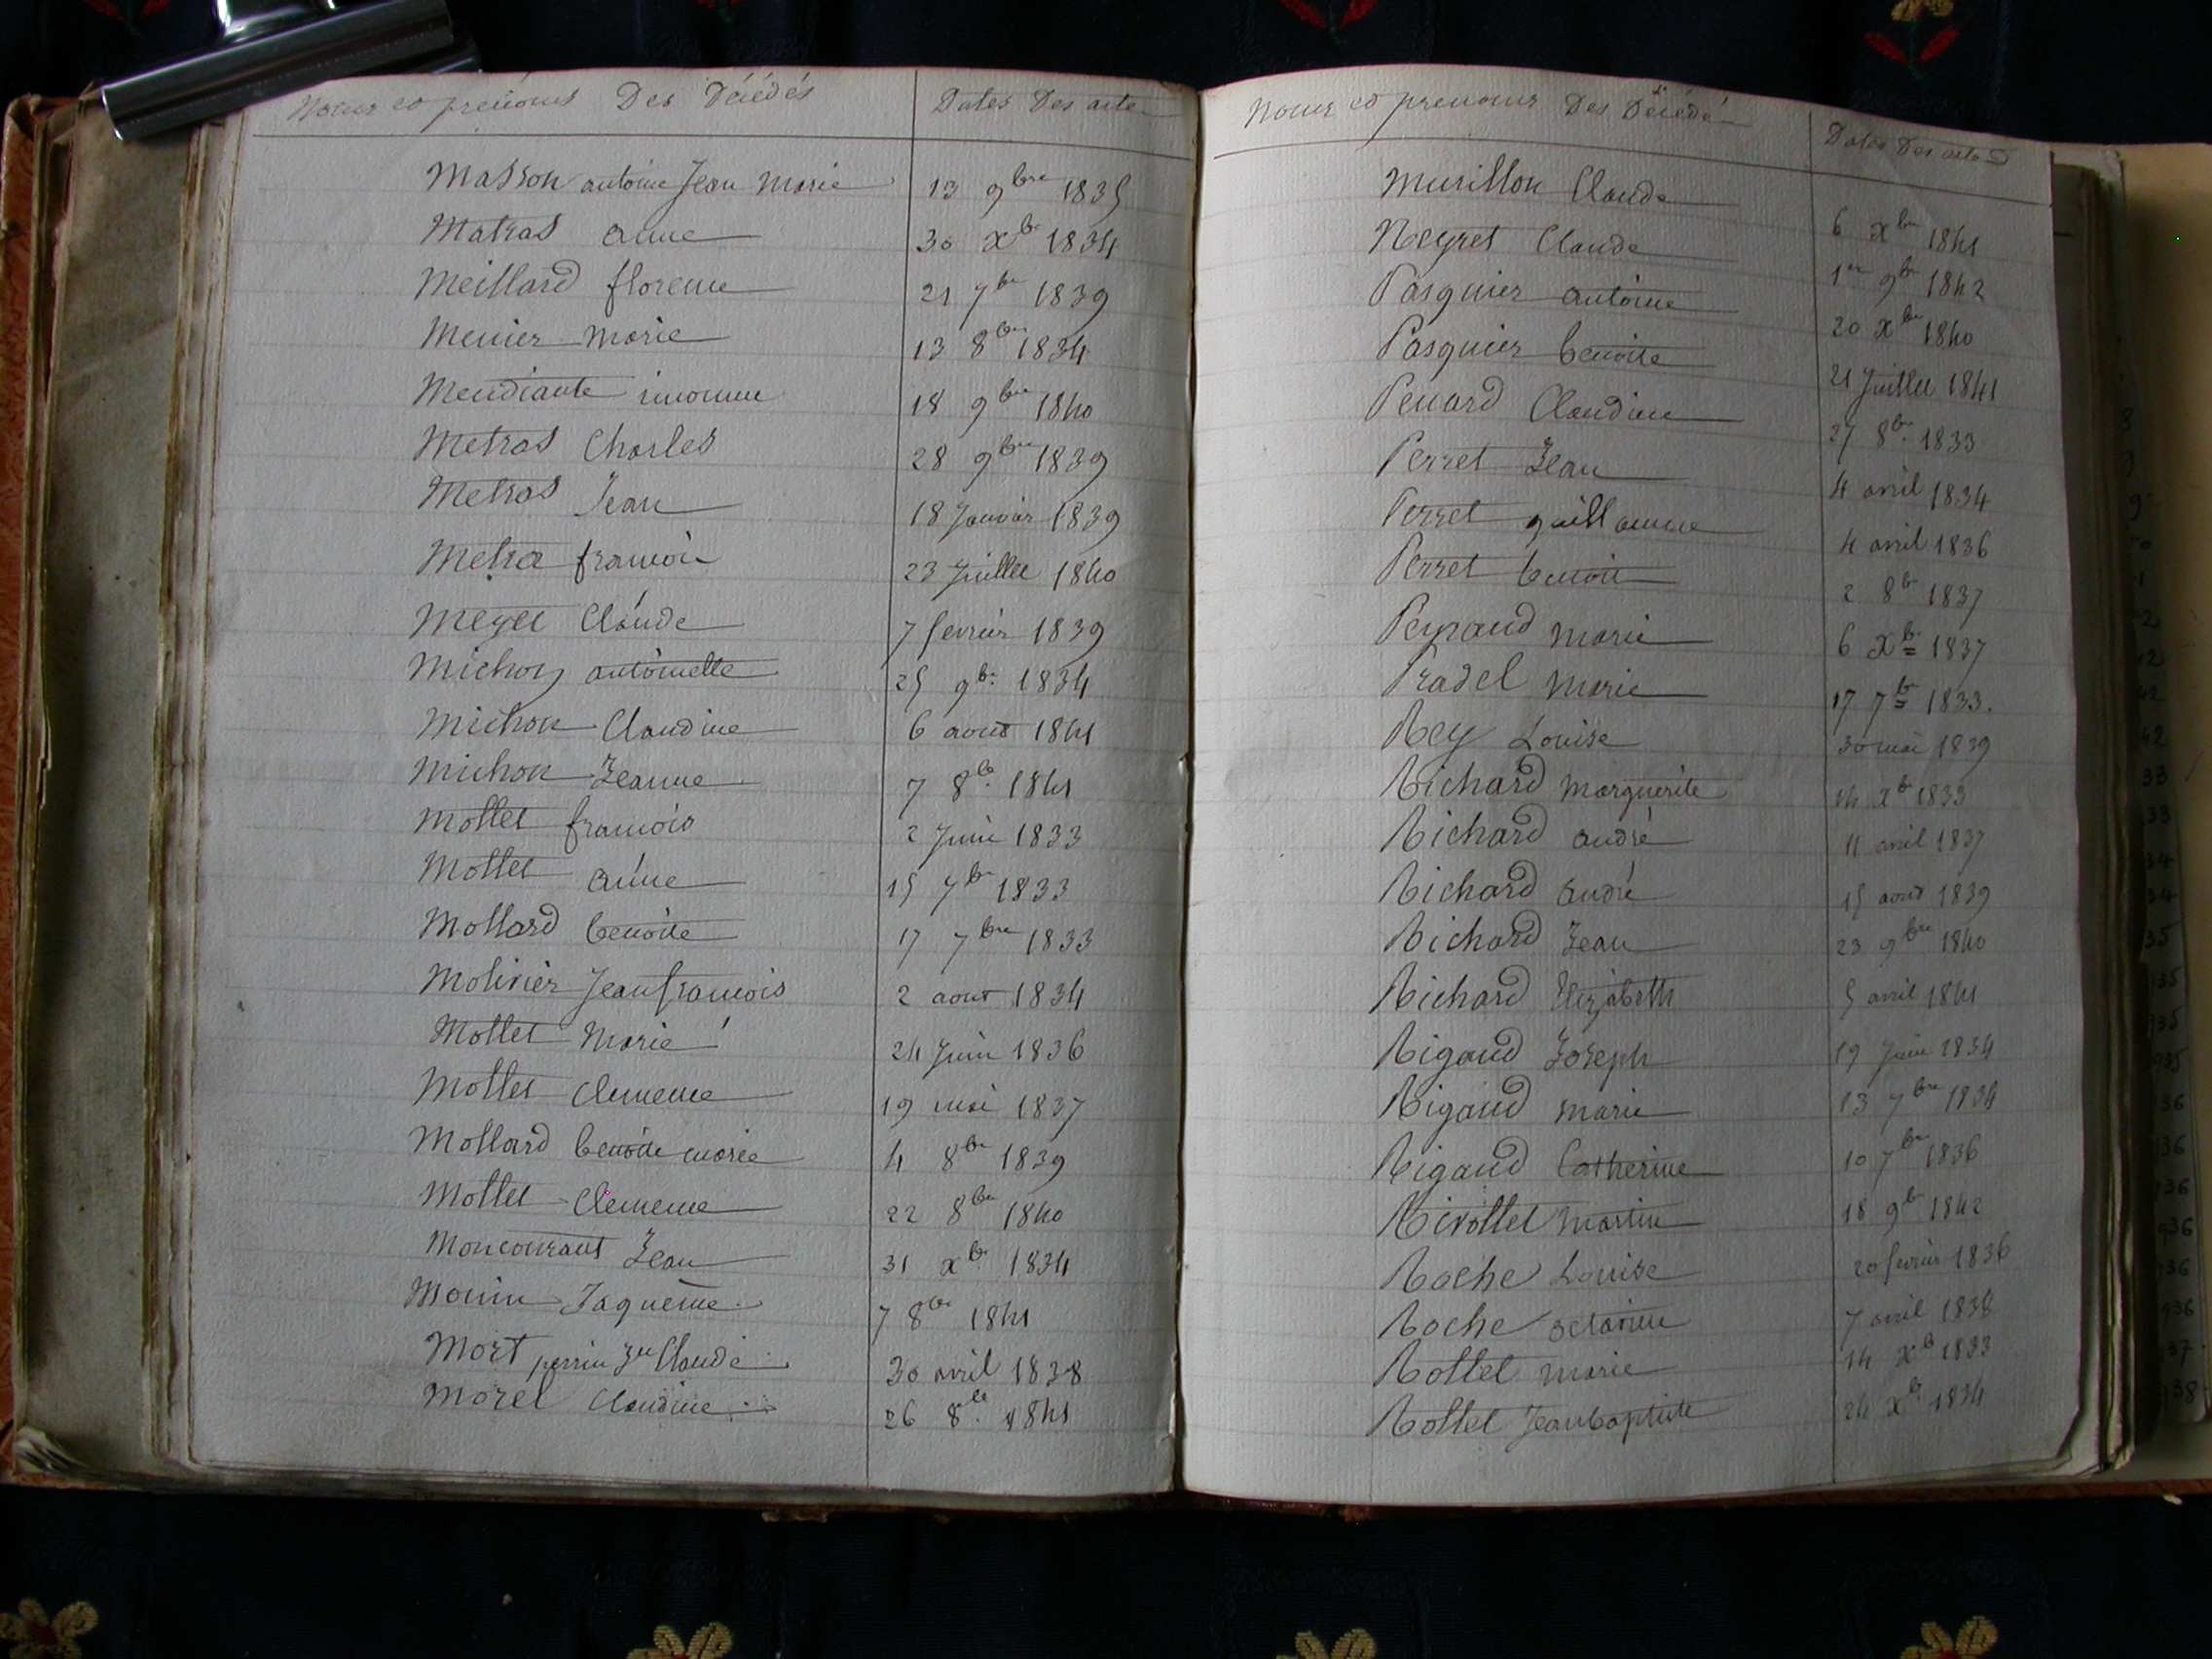 Noms et prénoms Des Décédés Dates Des actes
Masson antoine Jean Marie 13 9bre 1835
Matras anne 30 xbre 1834
Meillard florence 21 7bre 1839
Menier Marie 13 8bre 1834
Mendiante inconnue 18 9bre 1840
Metras Charles 28 9bre 1839
Metras Jean 18 Janvier 1839
Metra francois 23 Juillet 1840
Meyet Claude 7 fevrier 1839
Michon antoinette 25 9bre 1834
Michon Claudine 6 aout 1841
Michon Jeanne 7 8bre 1841
Mollet francois 2 Juin 1833
Mollet anne 15 7bre 1833
Mollard benoite 17 7bre 1833
Molivier Jean francois 2 aout 1834
Mollet Marie 24 Juin 1836
Mollet Clemence 19 mai 1837
Mollard benoite marie 4 8bre 1839
Mollet Clemence 22 8bre 1840
Moncourant Jean 31 xbre 1834
Monin Jaqueme 7 8bre 1841
Mort perrin Jn Claude 30 avril 1838
Morel Claudine 26 8bre 1841
Noms et prenoms Des Décédés Dates Des actes
Murillon Claude 6 xbre 1841
Neyret Claude 1er 9bre 1842
Pasquier antoine 20 xbre 1840
Pasquier benoite 21 Juillet 1841
Penard Claudine 27 8bre 1833
Perret Jean 4 avril 1834
Perret guillaume 4 avril 1836
Perret benoit 2 8bre 1837
Peyraud marie 6 xbre 1837
Pradel Marie 17 7bre 1833.
Rey Louise 30 mai 1839
Richard Marguerite 14 xbre 1833
Richard andré 11 avril 1837
Richard andré 15 aout 1839
Richard Jean 23 9bre 1840
Richard Elizabeth 5 avril 1841
Rigaud Joseph 19 Juin 1834
Rigaud marie 13 7bre 1834
Rigaud Catherine 10 7bre 1836
Rivollet Martin 18 9bre 1842
Roche Louise 20 fevrier 1836
Roche octavie 7 avril 1836
Rollet Marie 14 xbre 1833
Rollet Jean baptiste 24 xbre 1834